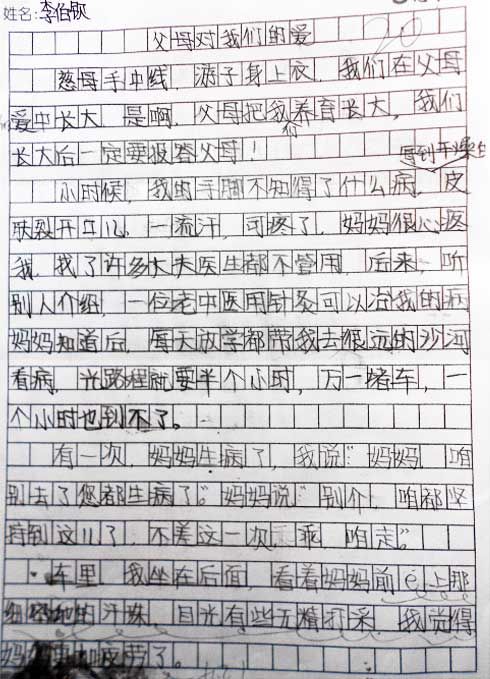 姓名:李伯
父母对我们的爱 20
慈母手中线，游子身上衣，我们在父母
爱中长大。是啊，父母把我们养育长大，我们
长大后一定要报答父母！
每到干燥
小时候，我的手脚不知得了什么病，皮
肤裂开口儿。一流汗，可疼了，妈妈很心疼
我，找了许多大夫医生都不管用，后来，听
别人介绍，一位老中医用针灸可以治我的病
妈妈知道后，每天放学都带我去很远的沙河
看病，光路程就要半个小时，万一堵车，一
个小时也到不了。
有一次，妈妈生病了，我说“妈妈，咱
别去了您都生病了。”妈妈说“别介，咱都坚
持到这儿了，不差这一次，乖，咱走。”
车里，我坐在后面，看着妈妈前e上那
的汗珠，目光有些无精打采，我觉得
妈妈更加疲劳了。